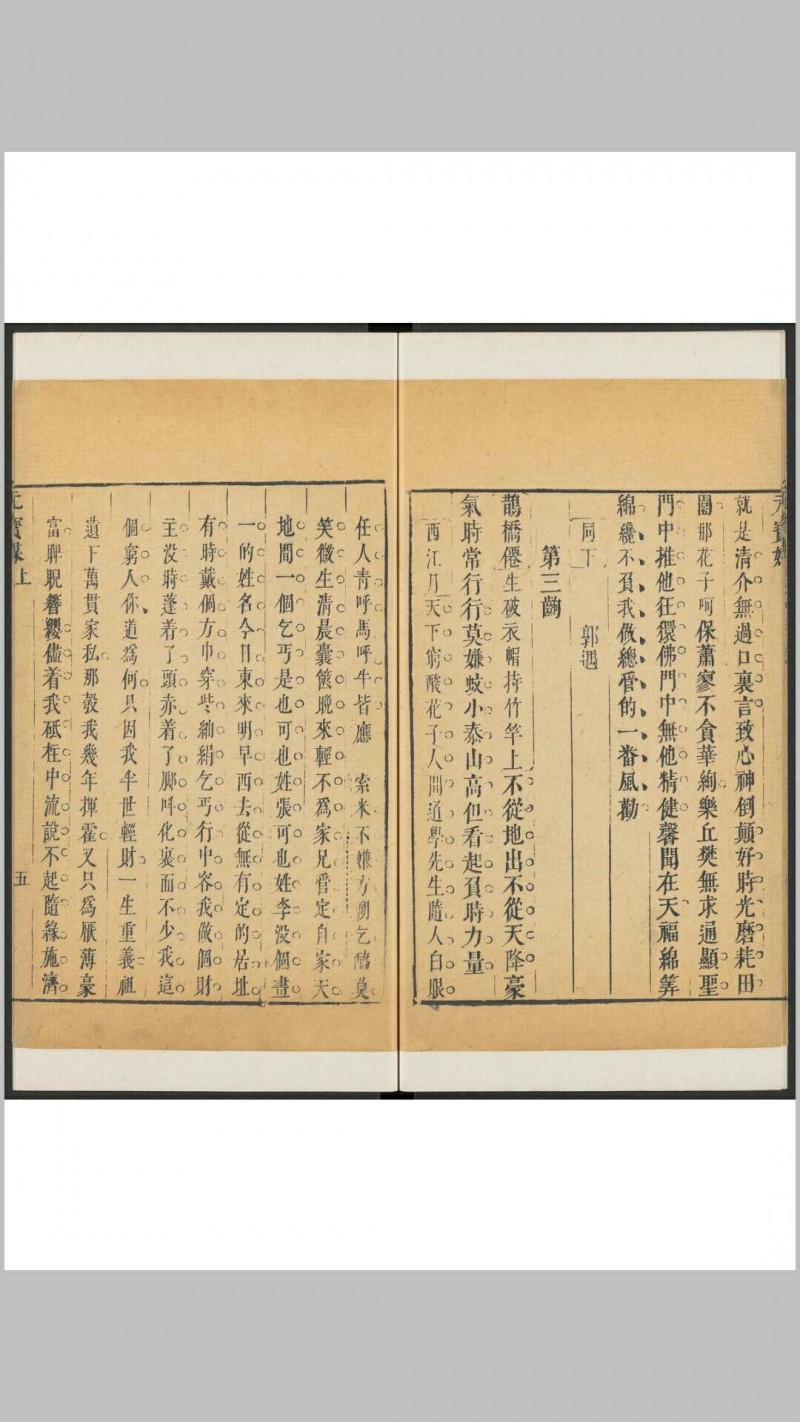 就是清介無過口裏言致心神倒顛好時光磨耗田
園那花子呵保蕭寥不貪華絢樂丘樊無求逼顯聖
門中推他狂獧佛門中無他精健馨聞在天福綿筭
綿纔不負我做總管的一番風勸
同下 郭遇
第三齣
鵲橋僊生破衣帽持竹竿上不從地出不從天降豪
氣時常行行莫嫌蚊小泰山高但看起負時力量
西江月天下窮酸花子人間道學先生隨人白眼
任人青呼馬呼牛皆應 索米不嫌方朔乞醯莫
笑微生清晨囊篋晚來輕不爲家兄管定自家天
地間一個乞丐是也可也姓張可也姓李没個畫
一的姓名今日東來明早西去從無有定的居址
有時戴個方巾穿些紬絹乞丐行中容我做個財
主没時蓬着了頭赤着了脚叫化裏面不少我這
個窮人你道爲何只因我半世輕財一生重義祖
遺下萬貫家私那彀我幾年揮霍又只爲厭薄豪
富睥睨簪纓儘着我砥在中流說不起隨緣施濟
元寶媒上 五